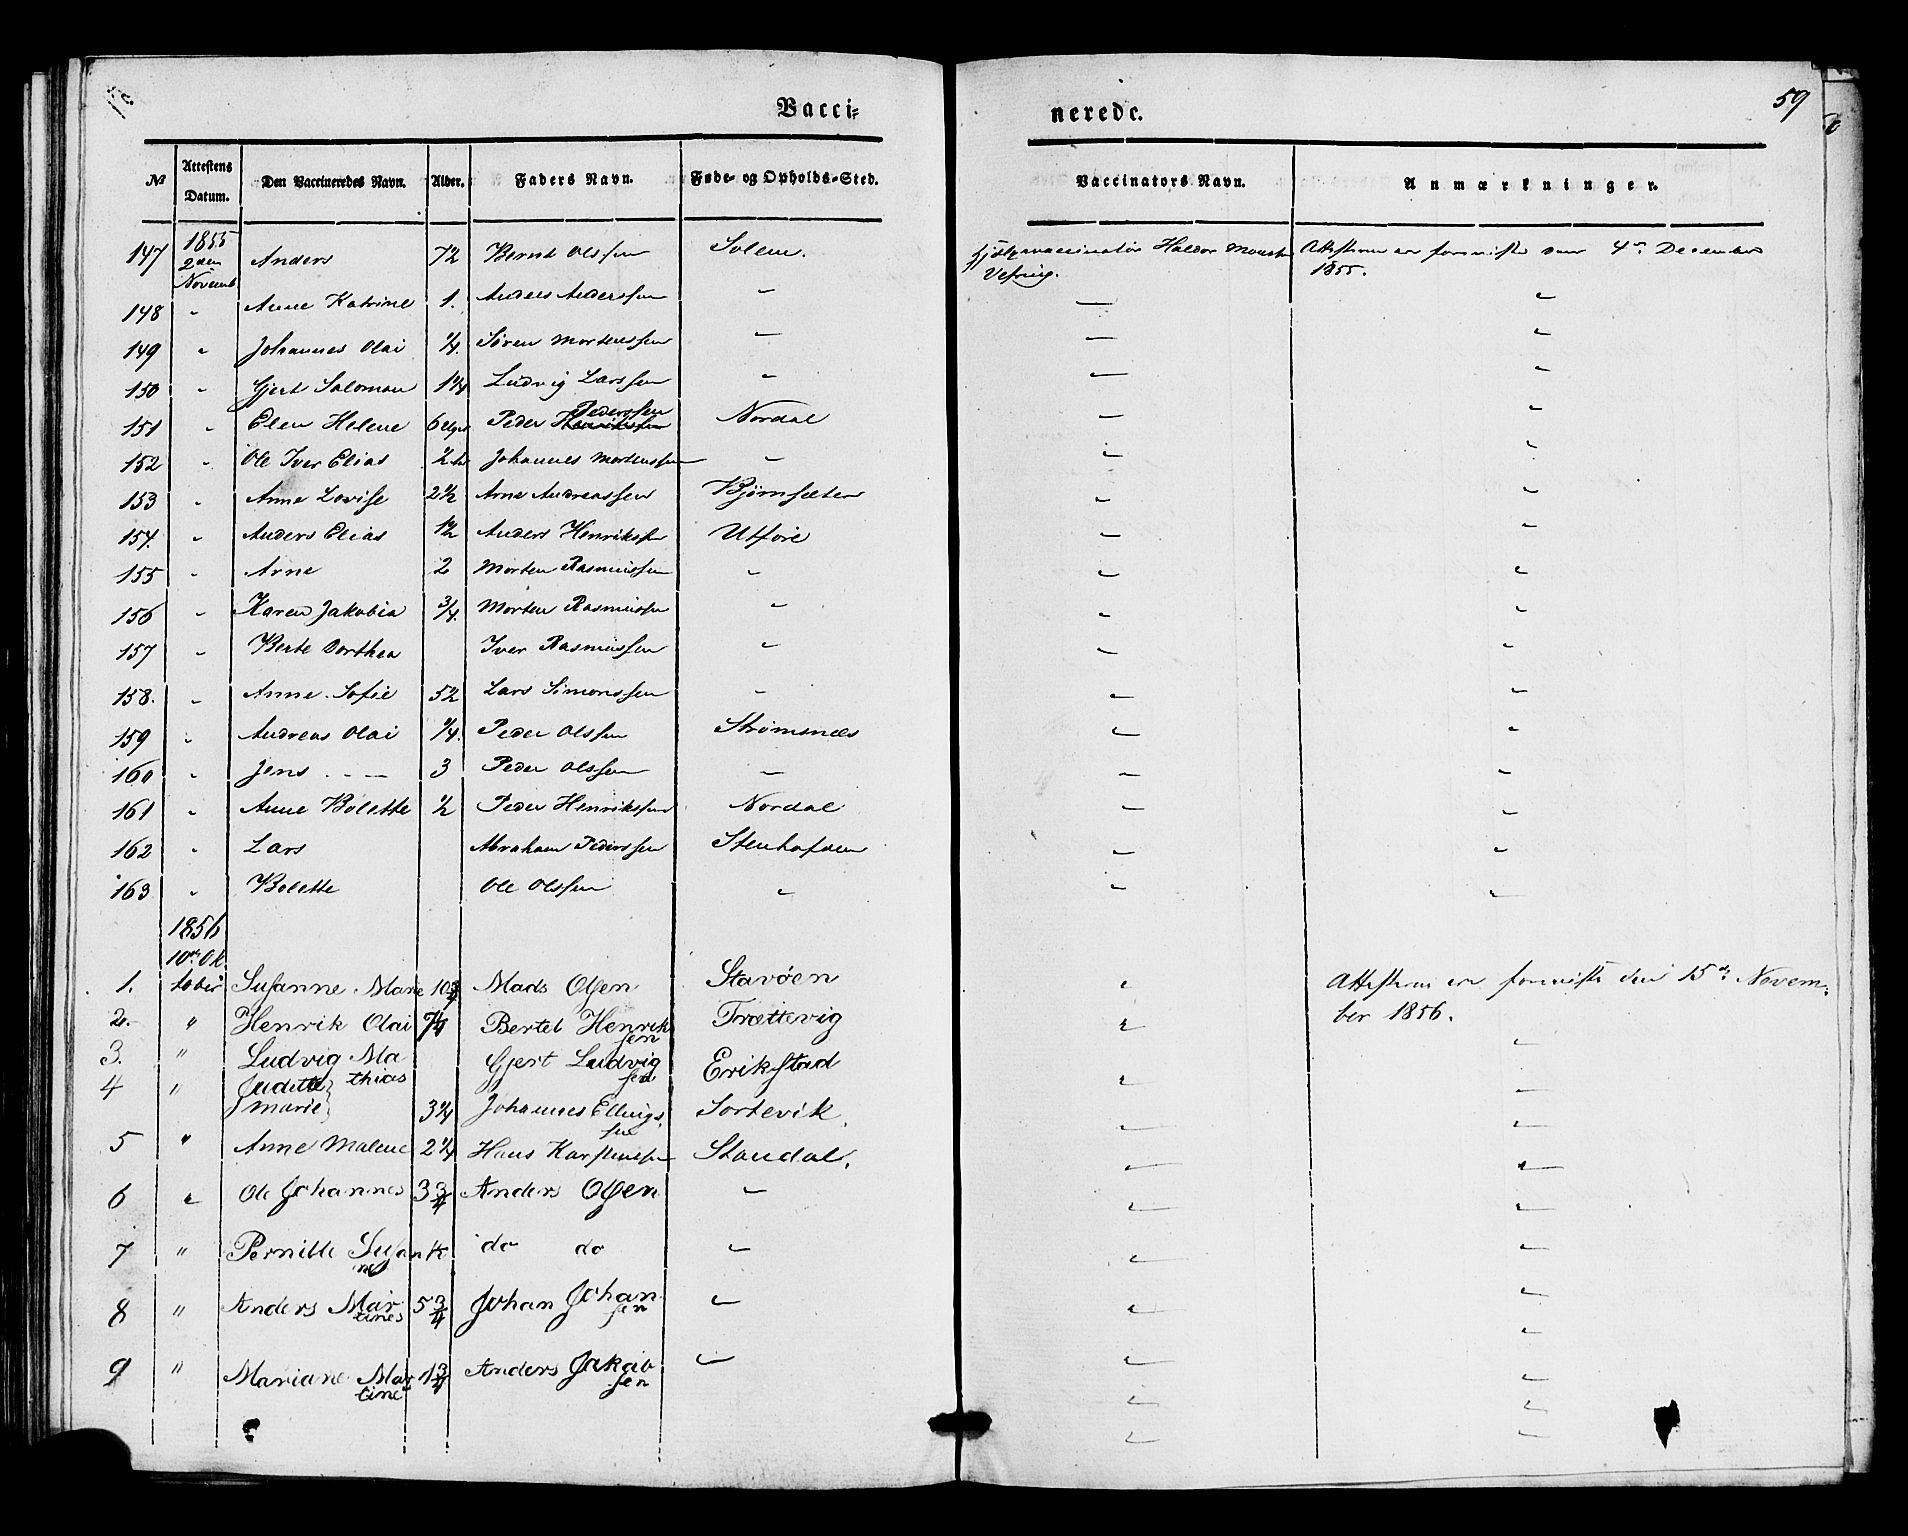 Vacci=
nerede.
59
№ Attestens Datum. Den Vaccineredes Navn. Alder. Faders Navn. Føde- og Opholds-Sted. Vaccinators Navn. Anmærkninger.
147 1855 2den Novemb Anders 7½ Bernt Olssen Solem. Hjælpevaccinatør Haldor Vefring. Attesterne er fornviste den 4de December 1855.
148 " Anne Katrine 1. Anders Anderssen — — "
149 " Johannes Olai ¼. Søren Mortenssen — — "
150 " Gjert Saloman 1¼ Ludvig Larssen " — "
151 " Elen Helene 6 Uger Peder Pederssen Nordal — "
152 " Ole Iver Elias Johannes Mortenssen " " "
153 " Anne Lovise 2½ Arne Andreassen Bjørnsæter " "
154. " Anders Elias 1½ Anders Henrikssen Utføre " "
155 " Arne 2 Morten Rasmussen " " "
156 " Karen Jakobia ¾. Morten Rasmussen " " "
157 " Berte Dorthea Iver Rasmussen " " "
158. " Anne Sofie 5½ Lars Simonssen " " "
159 " Andreas Olai ¼. Peder Olssen Strømsnæs " "
160 " Jens 3 Peder Olssen — " "
161 " Anne Bolette ½ Peder Henrikssen Nordal " "
162 " Lars Abraham Pederssen " "
163 " Bolette Ole Olssen " " "
1856
10de Ok
1. tober Susanne Marie 10¾ Mads Olsen Stavøen " Attesterne ere fornviste den 15de Novem-
2. " Henrik Olai 7¼ Bertel Henrik Trættevig " ber 1856.
sen
3. " Ludvig Ma Gjert Ludvig Erikstad "
thias sen
4 " Juditte
Marie 3¼ Johannes Ellings Sortevik. "
sen
5 " Anne Malene 2¼ Hans Karstenssen Standal. " "
6 " Ole Johannes 3¾ Anders Olsen " " "
7 " Pernille Susan ¼ do do " " "
ne
8 " Anders Mar 5¾ Johan Johan " " "
tines sen
9 " Mariane Mar 1¾ Anders Jakob " " "
tine sen